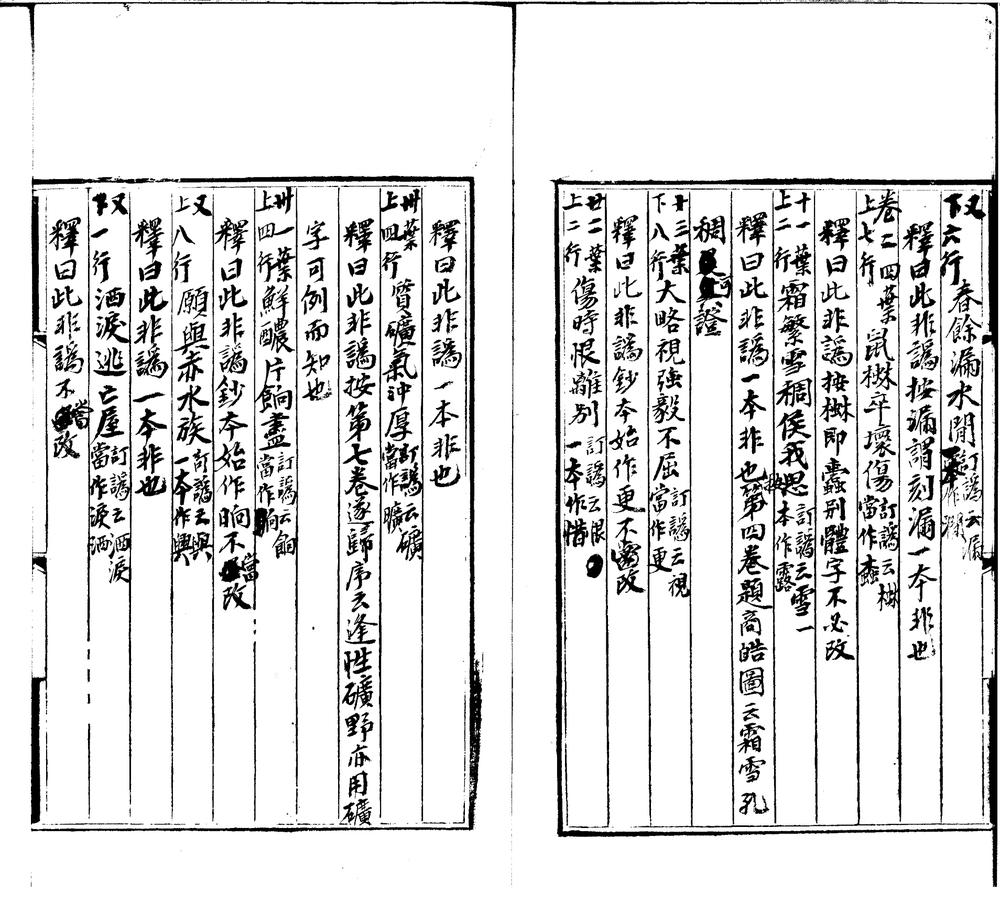 又下六行 春餘漏水閒 訂譌云漏一本作澗
釋曰此非譌按漏謂刻漏一本非也
卷二四葉上七行 鼠𣗥卒壞傷 訂譌云當作蠹
釋曰此非譌按即蠹別體字不必改
十一葉上二行 霜繁雪稠侯我思 訂譌云雪一本作露
釋曰此非譌一本非也按第四卷題商皓圖云霜雪孔
稠可證
廿三葉下八行 大略視強毅不屈 訂譌云視當作更
釋曰此非譌鈔本始作更不當改
廿二葉上二行 傷時恨離別 訂譌云恨一本作惜
釋曰此非譌一本非也
卅葉上四行 質礦氣冲厚 訂譌云礦當作曠
釋曰此非譌按第七卷遂歸序云逢性礦野亦用礦
字可例而知也
卅一葉上四行 鮮醲片餉盡 訂譌云餉當作晌
釋曰此非譌鈔本始作晌不當改
又上八行 願與赤水族 訂譌云與一本作興
釋曰此非譌一本非也
又下一行 洒淚逃亡屋 訂譌云洒淚當作淚洒
釋曰此非譌不當改